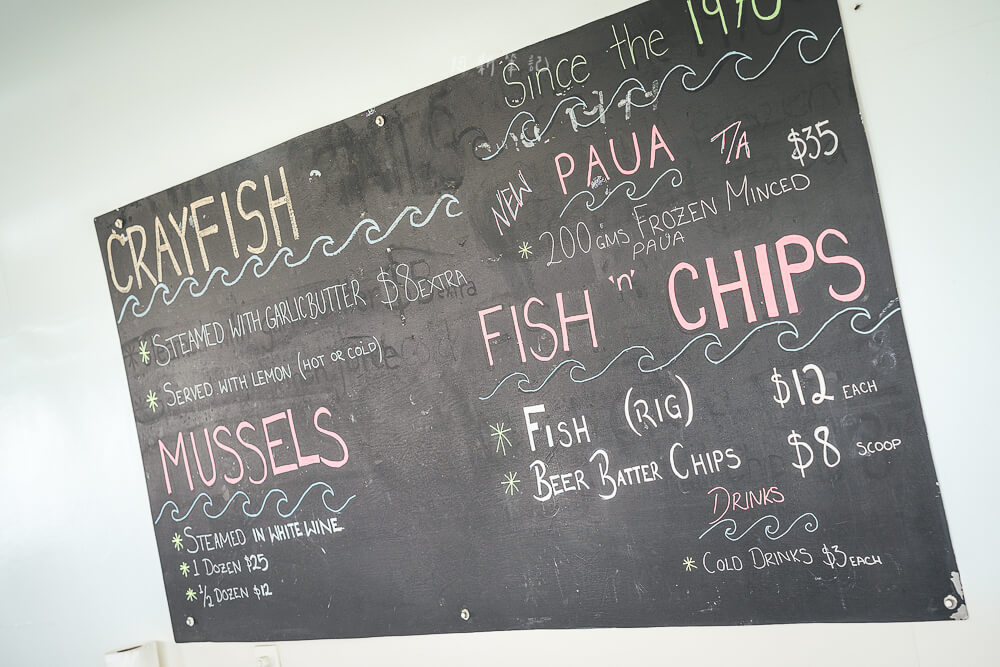 Since the 1970
CRAYFISH
* STEAMED WITH GARLIC BUTTER $8 EXTRA
* SERVED WITH LEMON (HOT OR COLD)
MUSSELS
* STEAMED IN WHITE WINE
* 1 DOZEN $25
* ½ DOZEN $12
NEW PAUA T/A $35
* 200 GMS FROZEN MINCED
PAUA
FISH 'n' CHIPS
* FISH (RIG) $12 EACH
* BEER BATTER CHIPS $8 SCOOP
DRINKS
* COLD DRINKS $3 EACH